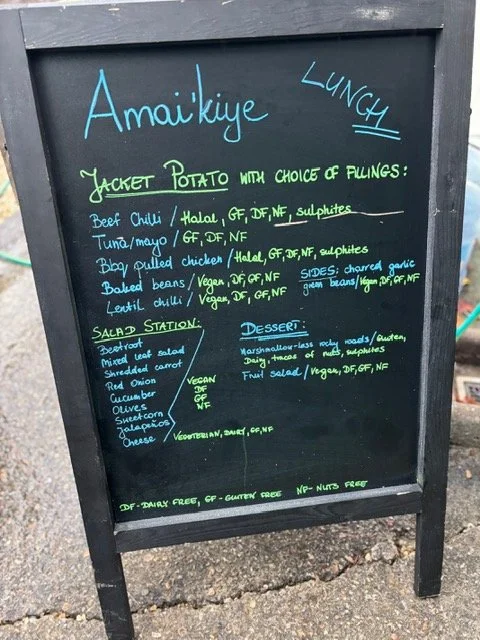 Amai'kiye
LUNCH
JACKET POTATO WITH CHOICE OF FILLINGS:
Beef Chilli / Halal, GF, DF, NF, sulphites
Tuna/mayo / GF, DF, NF
Bbq pulled chicken / Halal, GF, DF, NF, sulphites
Baked beans / Vegan, DF, GF, NF
Lentil chilli / Vegan, DF, GF, NF
SIDES: charred garlic
green beans / Vegan, DF, GF, NF
SALAD STATION:
Beetroot
Mixed leaf salad
Shredded carrot
Red Onion
Cucumber
Olives
Sweetcorn
Jalapeños
VEGAN
DF
GF
NF
Cheese / VEGETERIAN, DAIRY, GF, NF
DESSERT:
Marshmallow-less rocky roads / Gluten,
Dairy, traces of nuts, sulphites
Fruit salad / Vegan, DF, GF, NF
DF-DAIRY FREE, GF-GLUTEN FREE NF-NUTS FREE